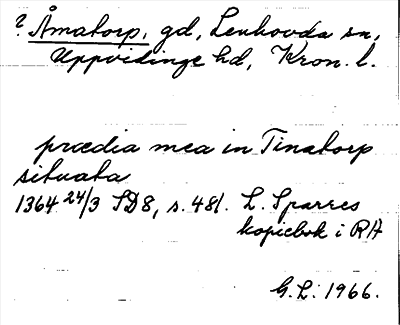 ? Åmatorp, gd, Lenhovda sn,
Uppvidinge hd, Kron. l.
prædia mea in Tinatorp
situata
1364 24/3 SD8, s. 481. L. Sparres
kopiebok i RA
G.L. 1966.